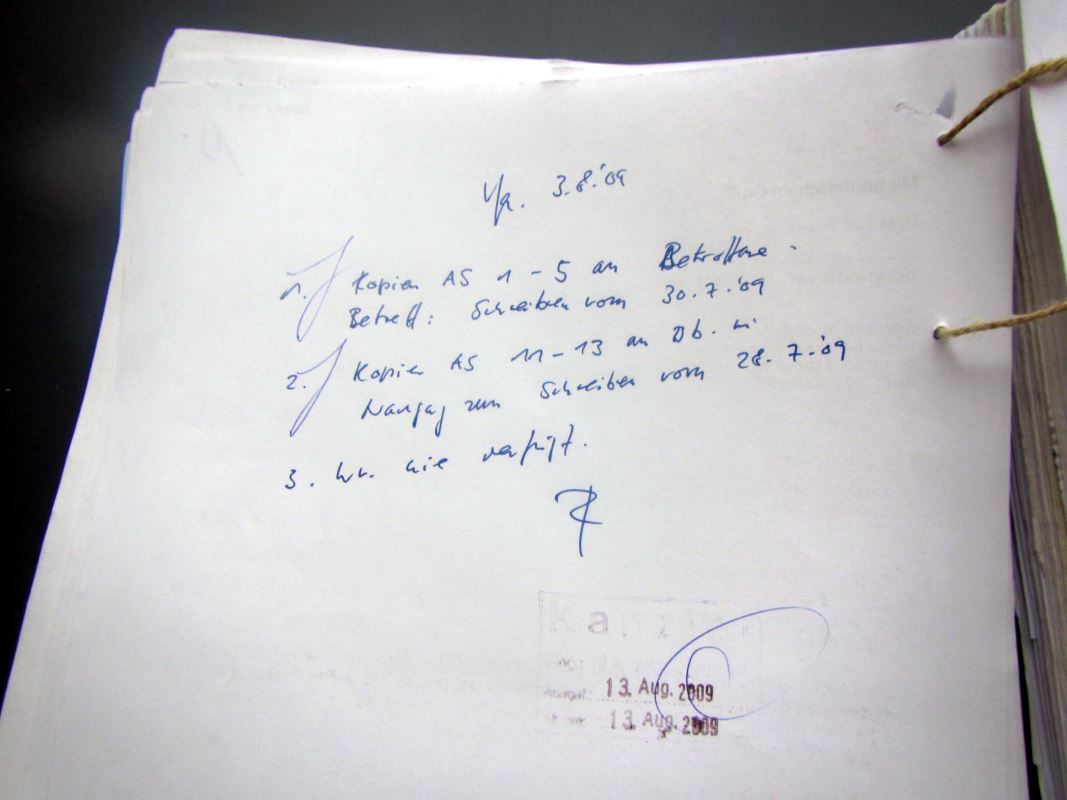 Vfg. 3.8.'09
1. Kopien AS 1-5 an Betroffene
Betreff: Schreiben vom 30.7.'09
2. Kopien AS 11-13 an Db. in
zum Schreiben vom 28.7.'09
3. wie verfügt.
Kanzlei
13. Aug. 2009
13. Aug. 2009